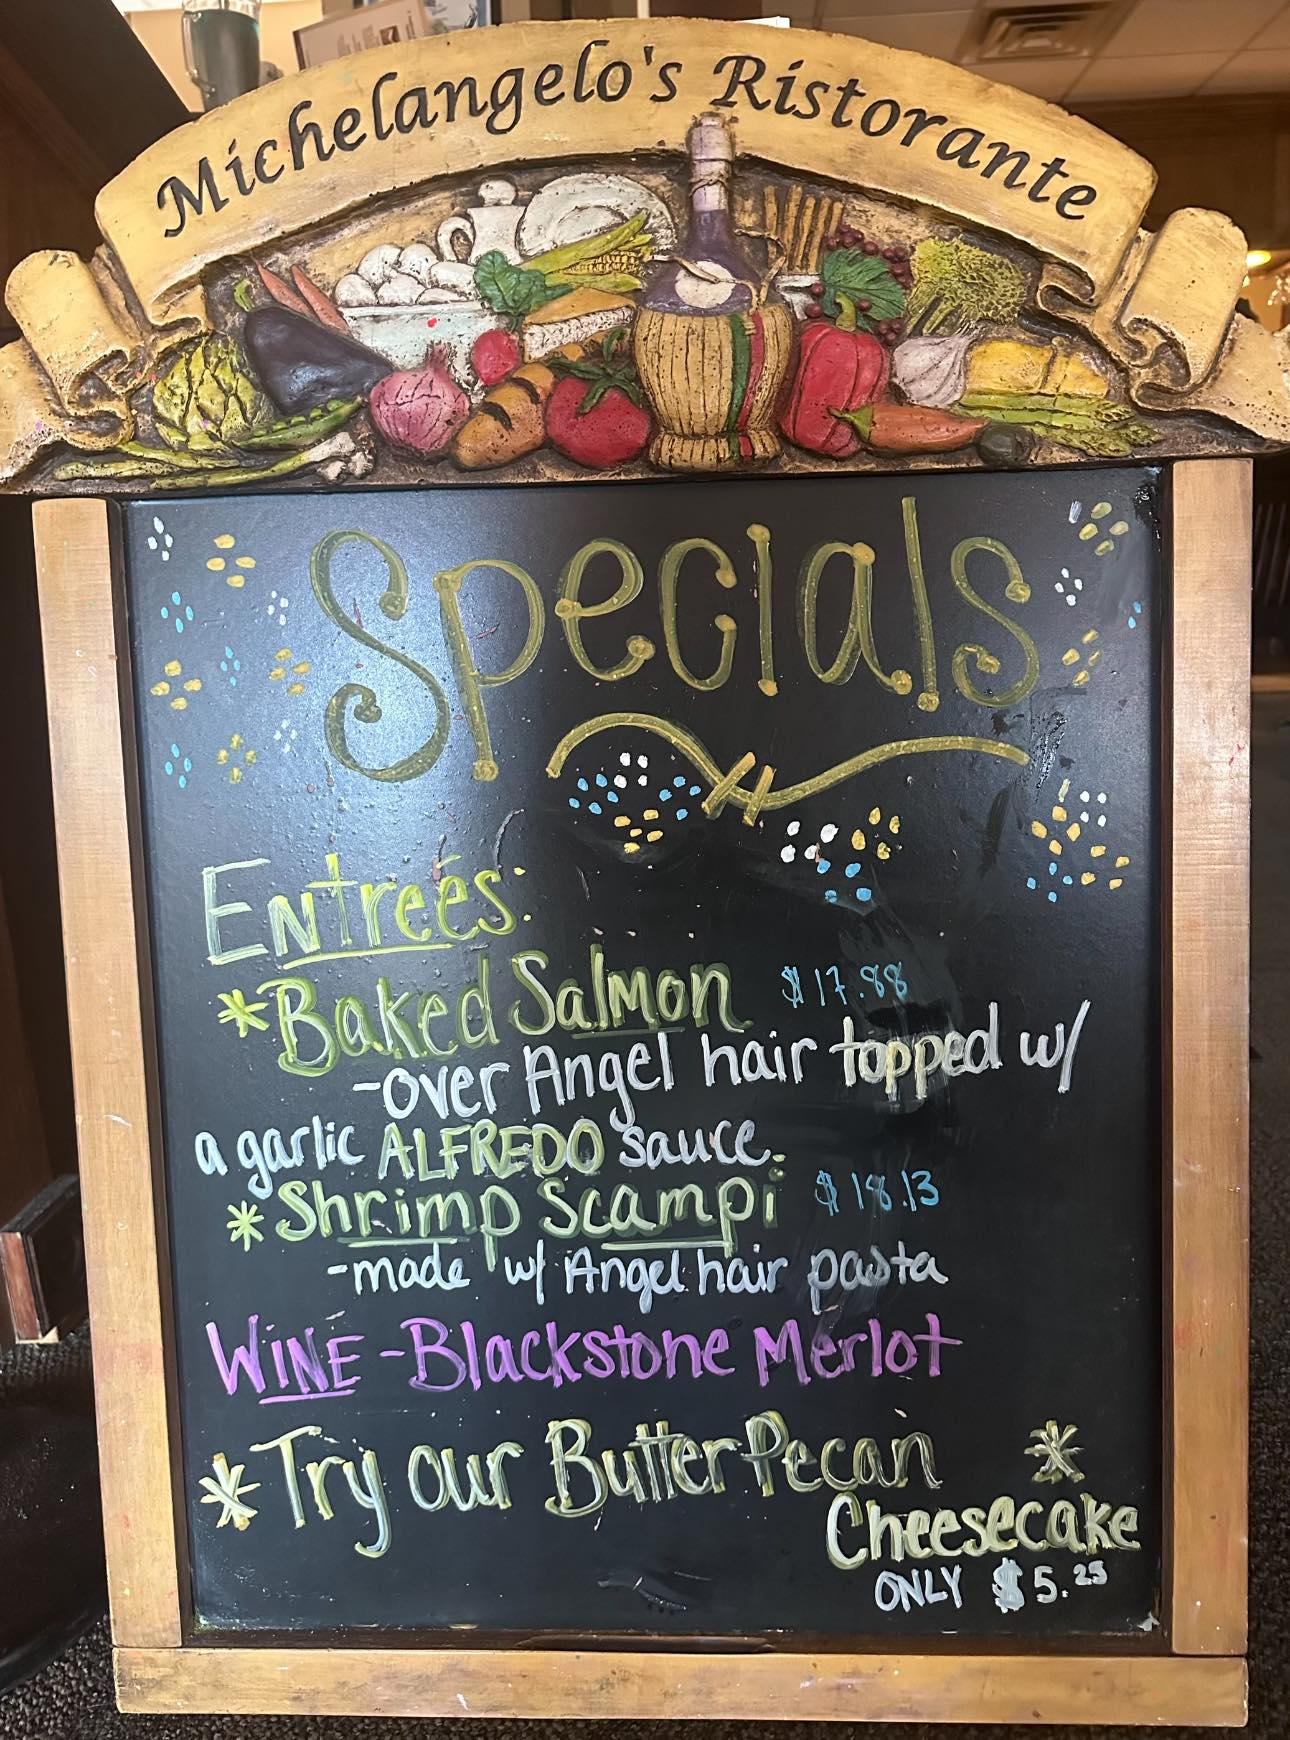 Michelangelo's Ristorante
Specials
Entreés:
*Baked Salmon $17.88
-over Angel hair topped w/
a garlic ALFREDO sauce.
*Shrimp Scampi $18.13
-made w/ Angel hair pasta
WINE-Blackstone Merlot
*Try our Butter Pecan *
Cheesecake
ONLY $5.25